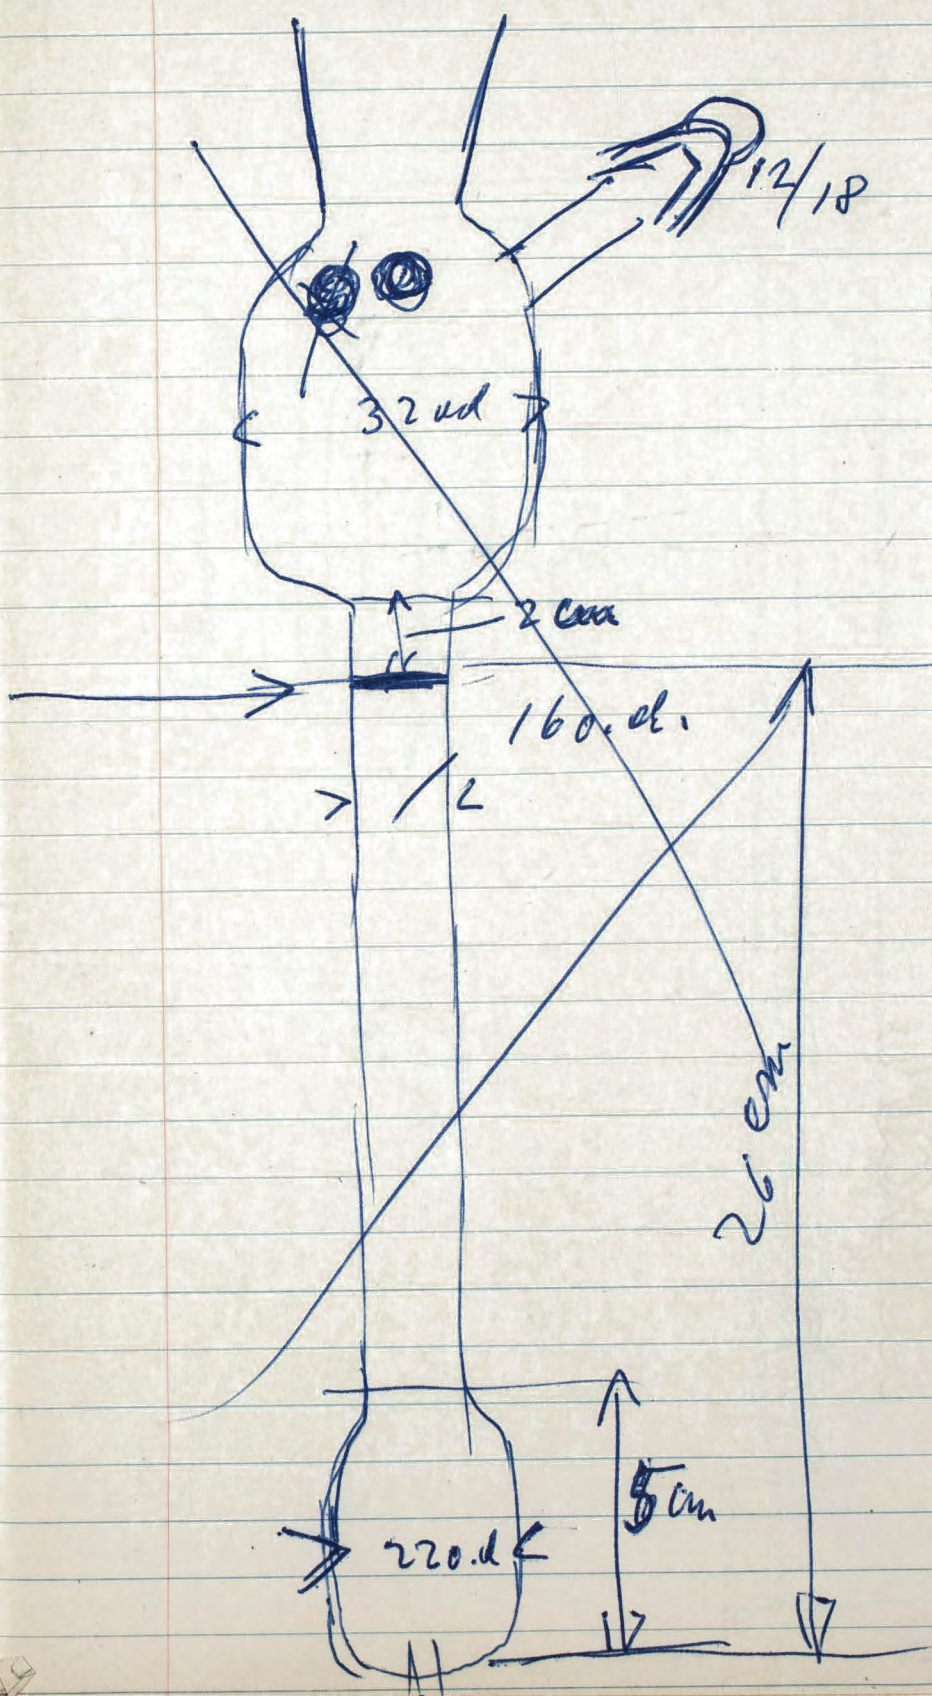 12/18
32 od
2 cm
160.d.
26 cm
5 cm
220.d